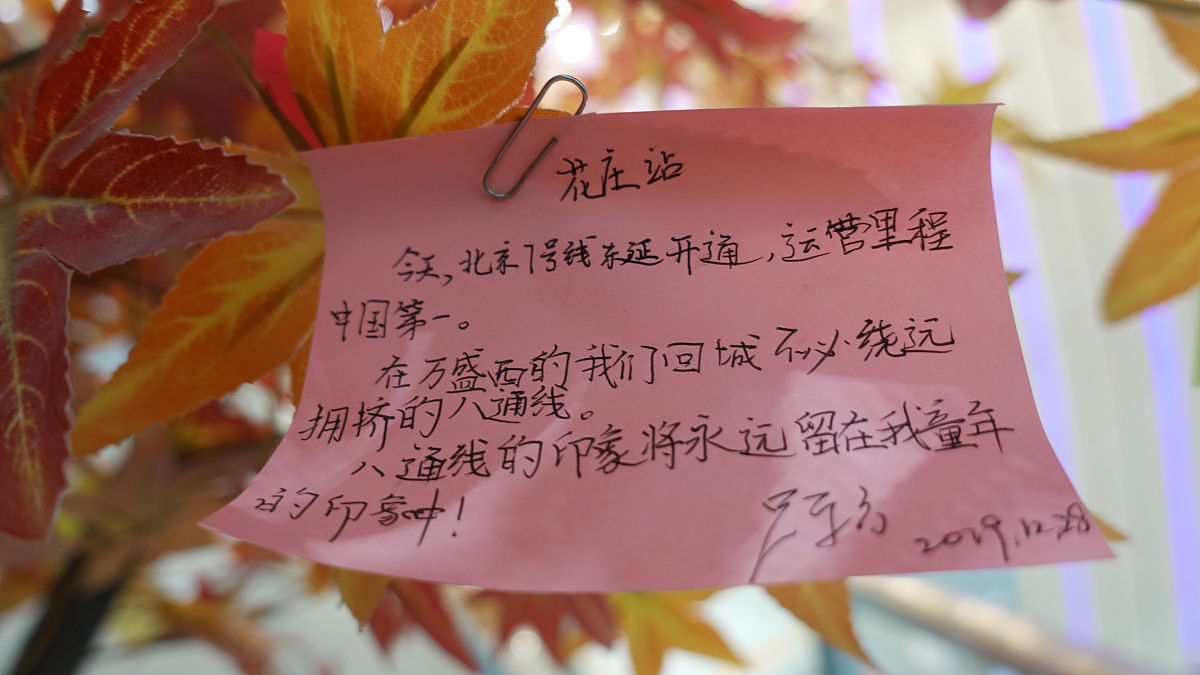 花庄站
今天,北京7号线东延开通,运营里程
中国第一。
在万盛西的我们回城不必绕远
拥挤的八通线。
八通线的印象将永远留在我童年
的印象中!
2019.12.28